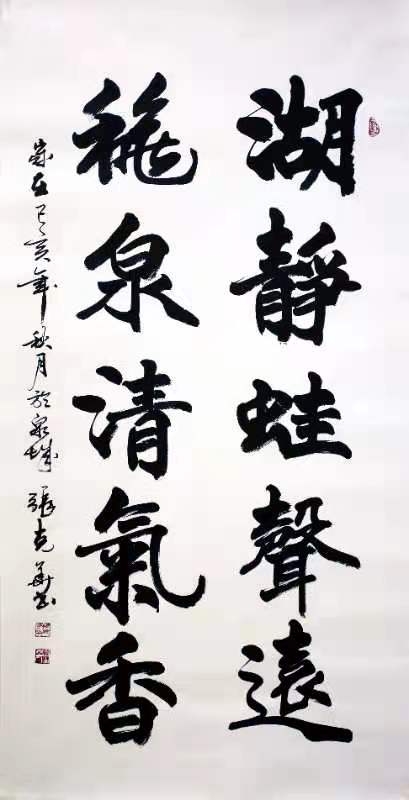 湖靜蛙聲遠
泉清氣香
歲在己亥年秋月於泉城 張克華書